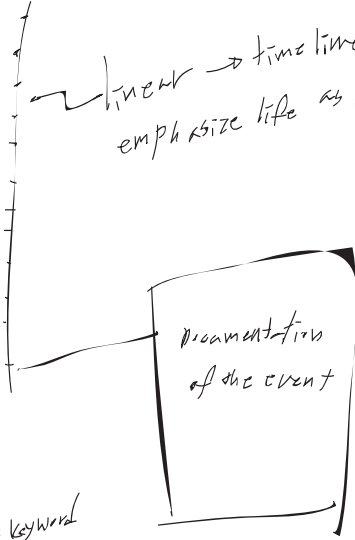 linear → timeline
emphasize life as
Documentation
of the event
keyword